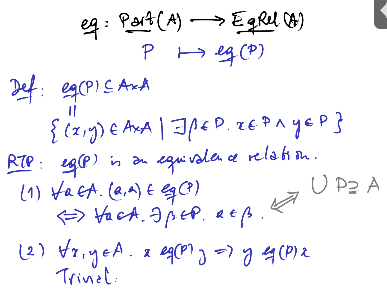 eq : Part(A) ⟶ EqRel(A)
P ⟼ eq(P)
Def: eq(P) ⊆ A×A
||
{ (x,y) ∈ A×A | ∃β∈P. x∈P ∧ y∈P }
RTP: eq(P) is an equivalence relation.
(1) ∀a∈A. (a,a) ∈ eq(P)
⟺ ∀a∈A. ∃β∈P. a∈β. ⟺ ∪P ⊇ A
(2) ∀x,y∈A. x eq(P) y ⟹ y eq(P) x
Trivial.